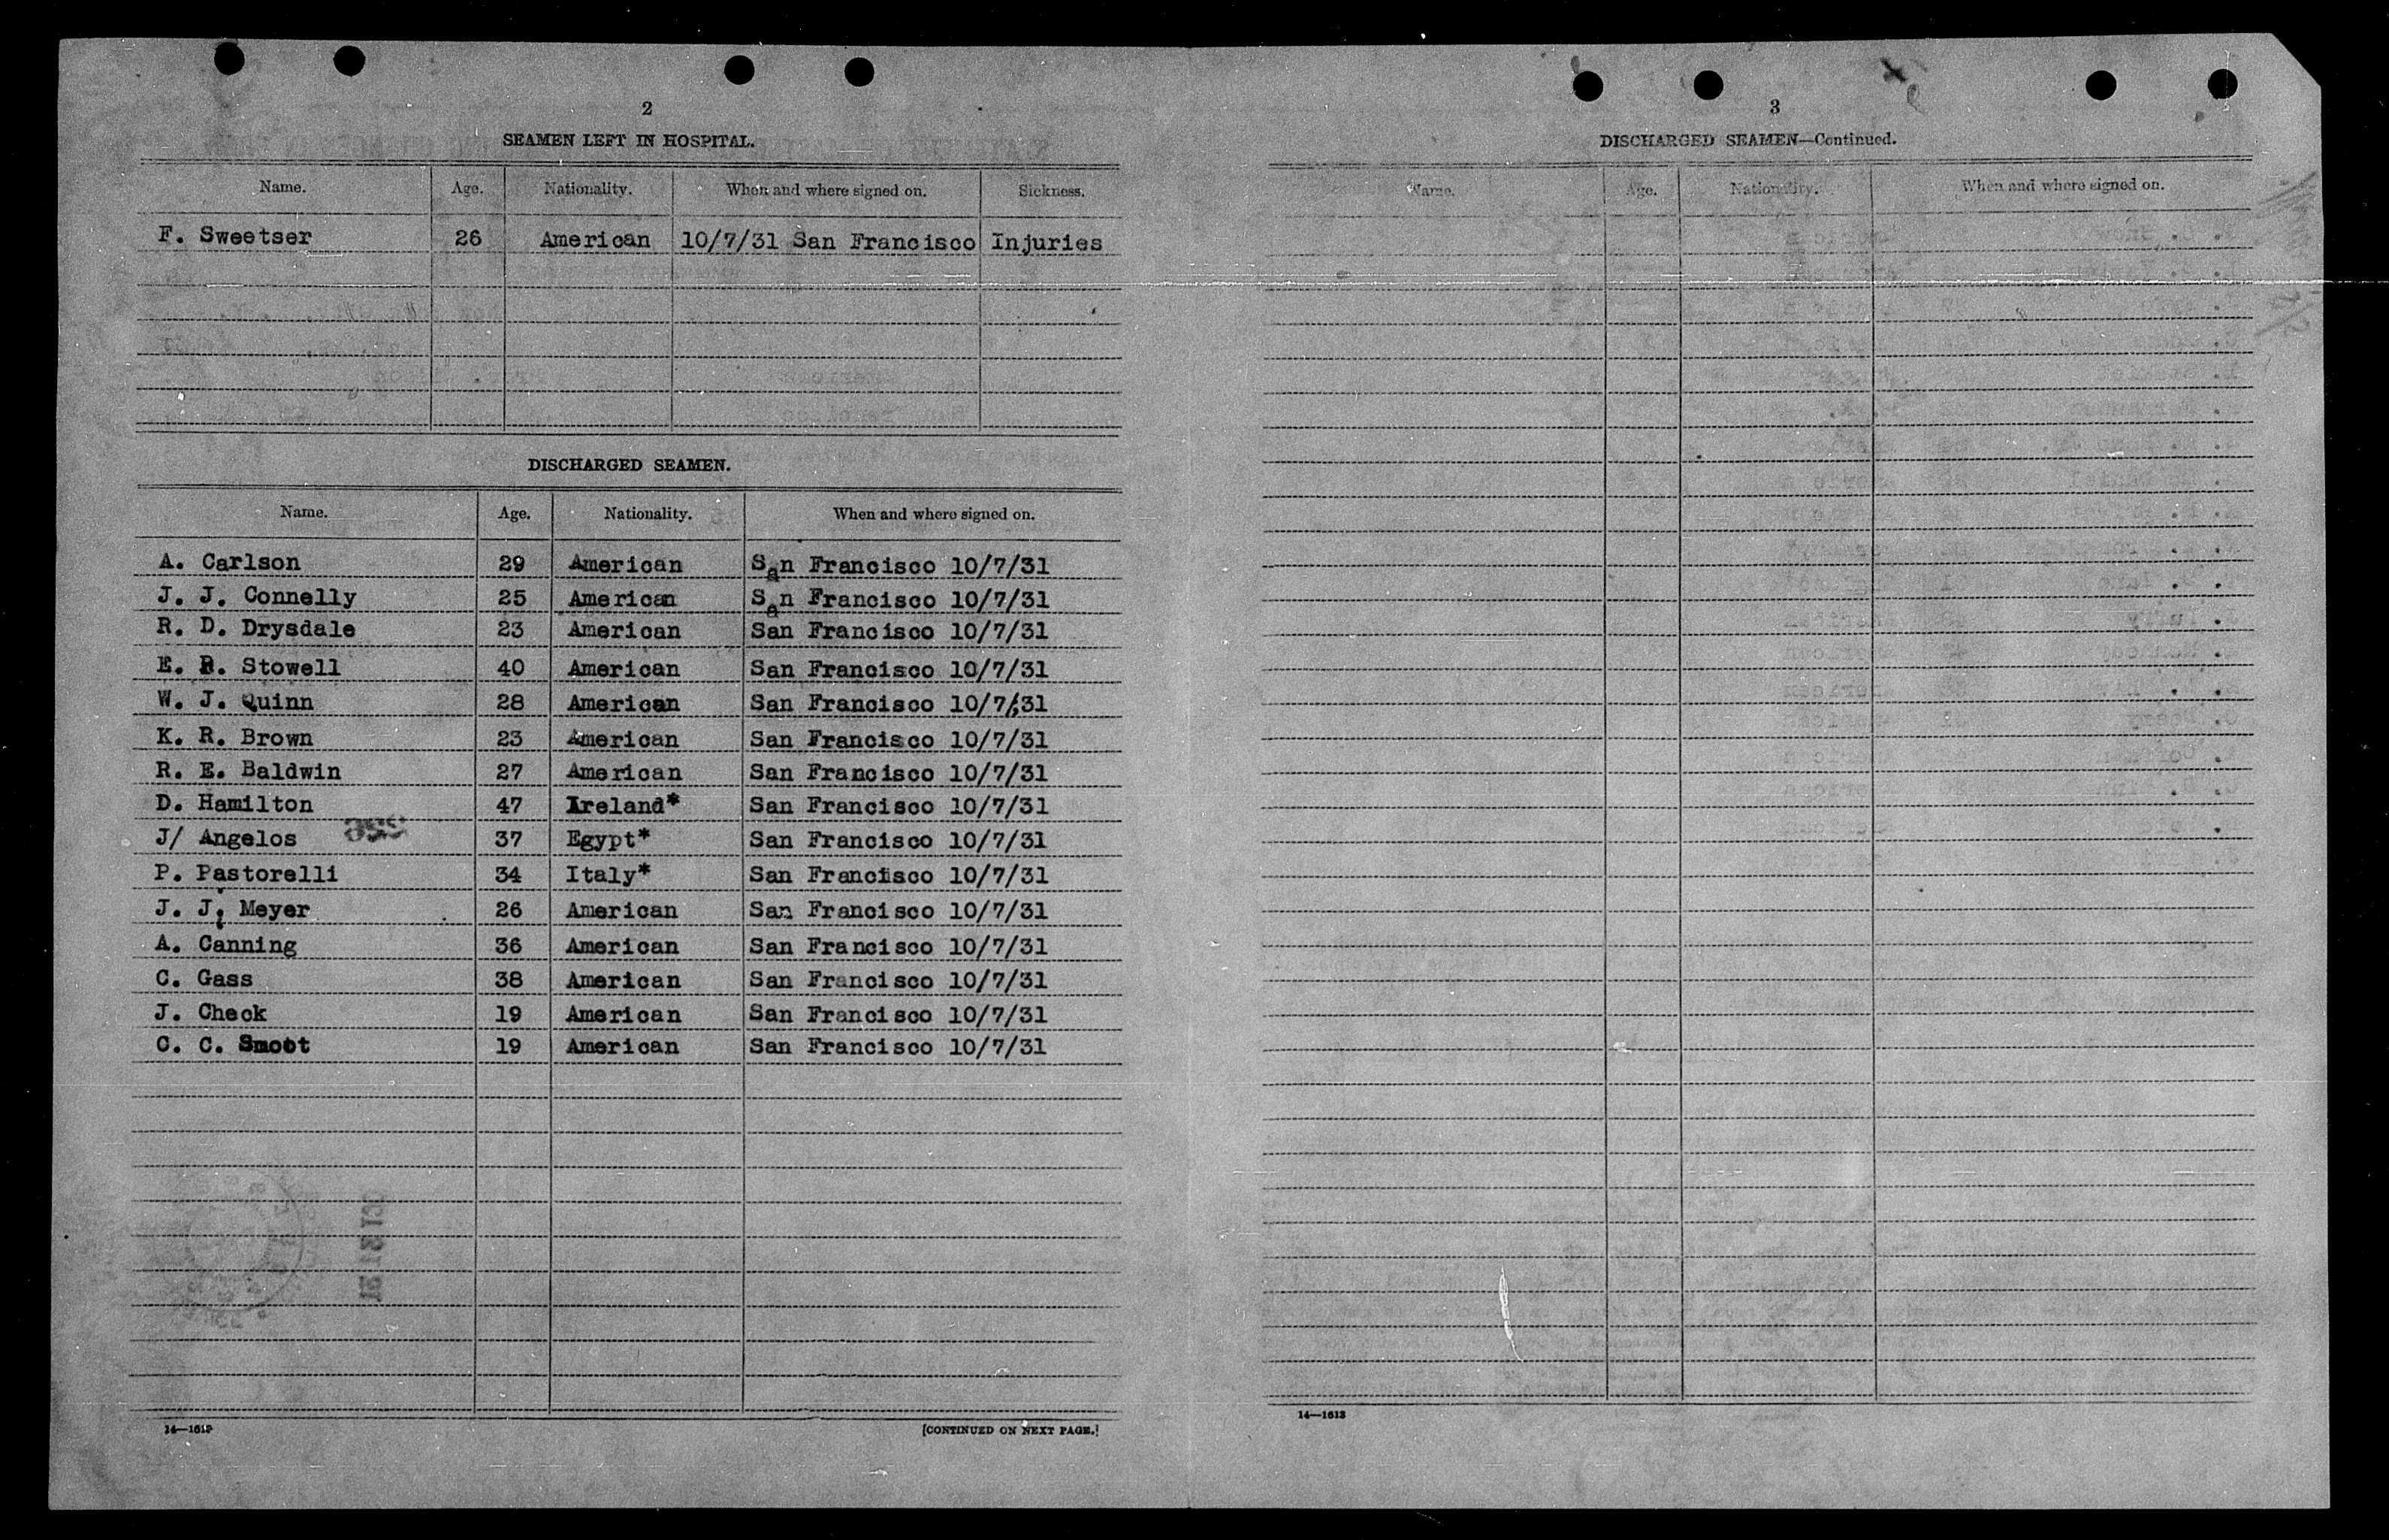 2
SEAMEN LEFT IN HOSPITAL.
Name. Age. Nationality. When and where signed on. Sickness.
F. Sweetser 26 American 10/7/31 San Francisco Injuries
DISCHARGED SEAMEN.
Name. Age. Nationality. When and where signed on.
A. Carlson 29 American San Francisco 10/7/31
J. J. Connelly 25 American San Francisco 10/7/31
R. D. Drysdale 23 American San Francisco 10/7/31
E. R. Stowell 40 American San Francisco 10/7/31
W. J. Quinn 28 American San Francisco 10/7/31
K. R. Brown 23 American San Francisco 10/7/31
R. E. Baldwin 27 American San Francisco 10/7/31
D. Hamilton 47 Ireland* San Francisco 10/7/31
J/ Angelos 37 Egypt* San Francisco 10/7/31
P. Pastorelli 34 Italy* San Francisco 10/7/31
J. J. Meyer 26 American San Francisco 10/7/31
A. Canning 36 American San Francisco 10/7/31
C. Gass 38 American San Francisco 10/7/31
J. Check 19 American San Francisco 10/7/31
C. C. Smoot 19 American San Francisco 10/7/31
14—1613
[CONTINUED ON NEXT PAGE.]
3
DISCHARGED SEAMEN—Continued.
Name. Age. Nationality. When and where signed on.
14—1613